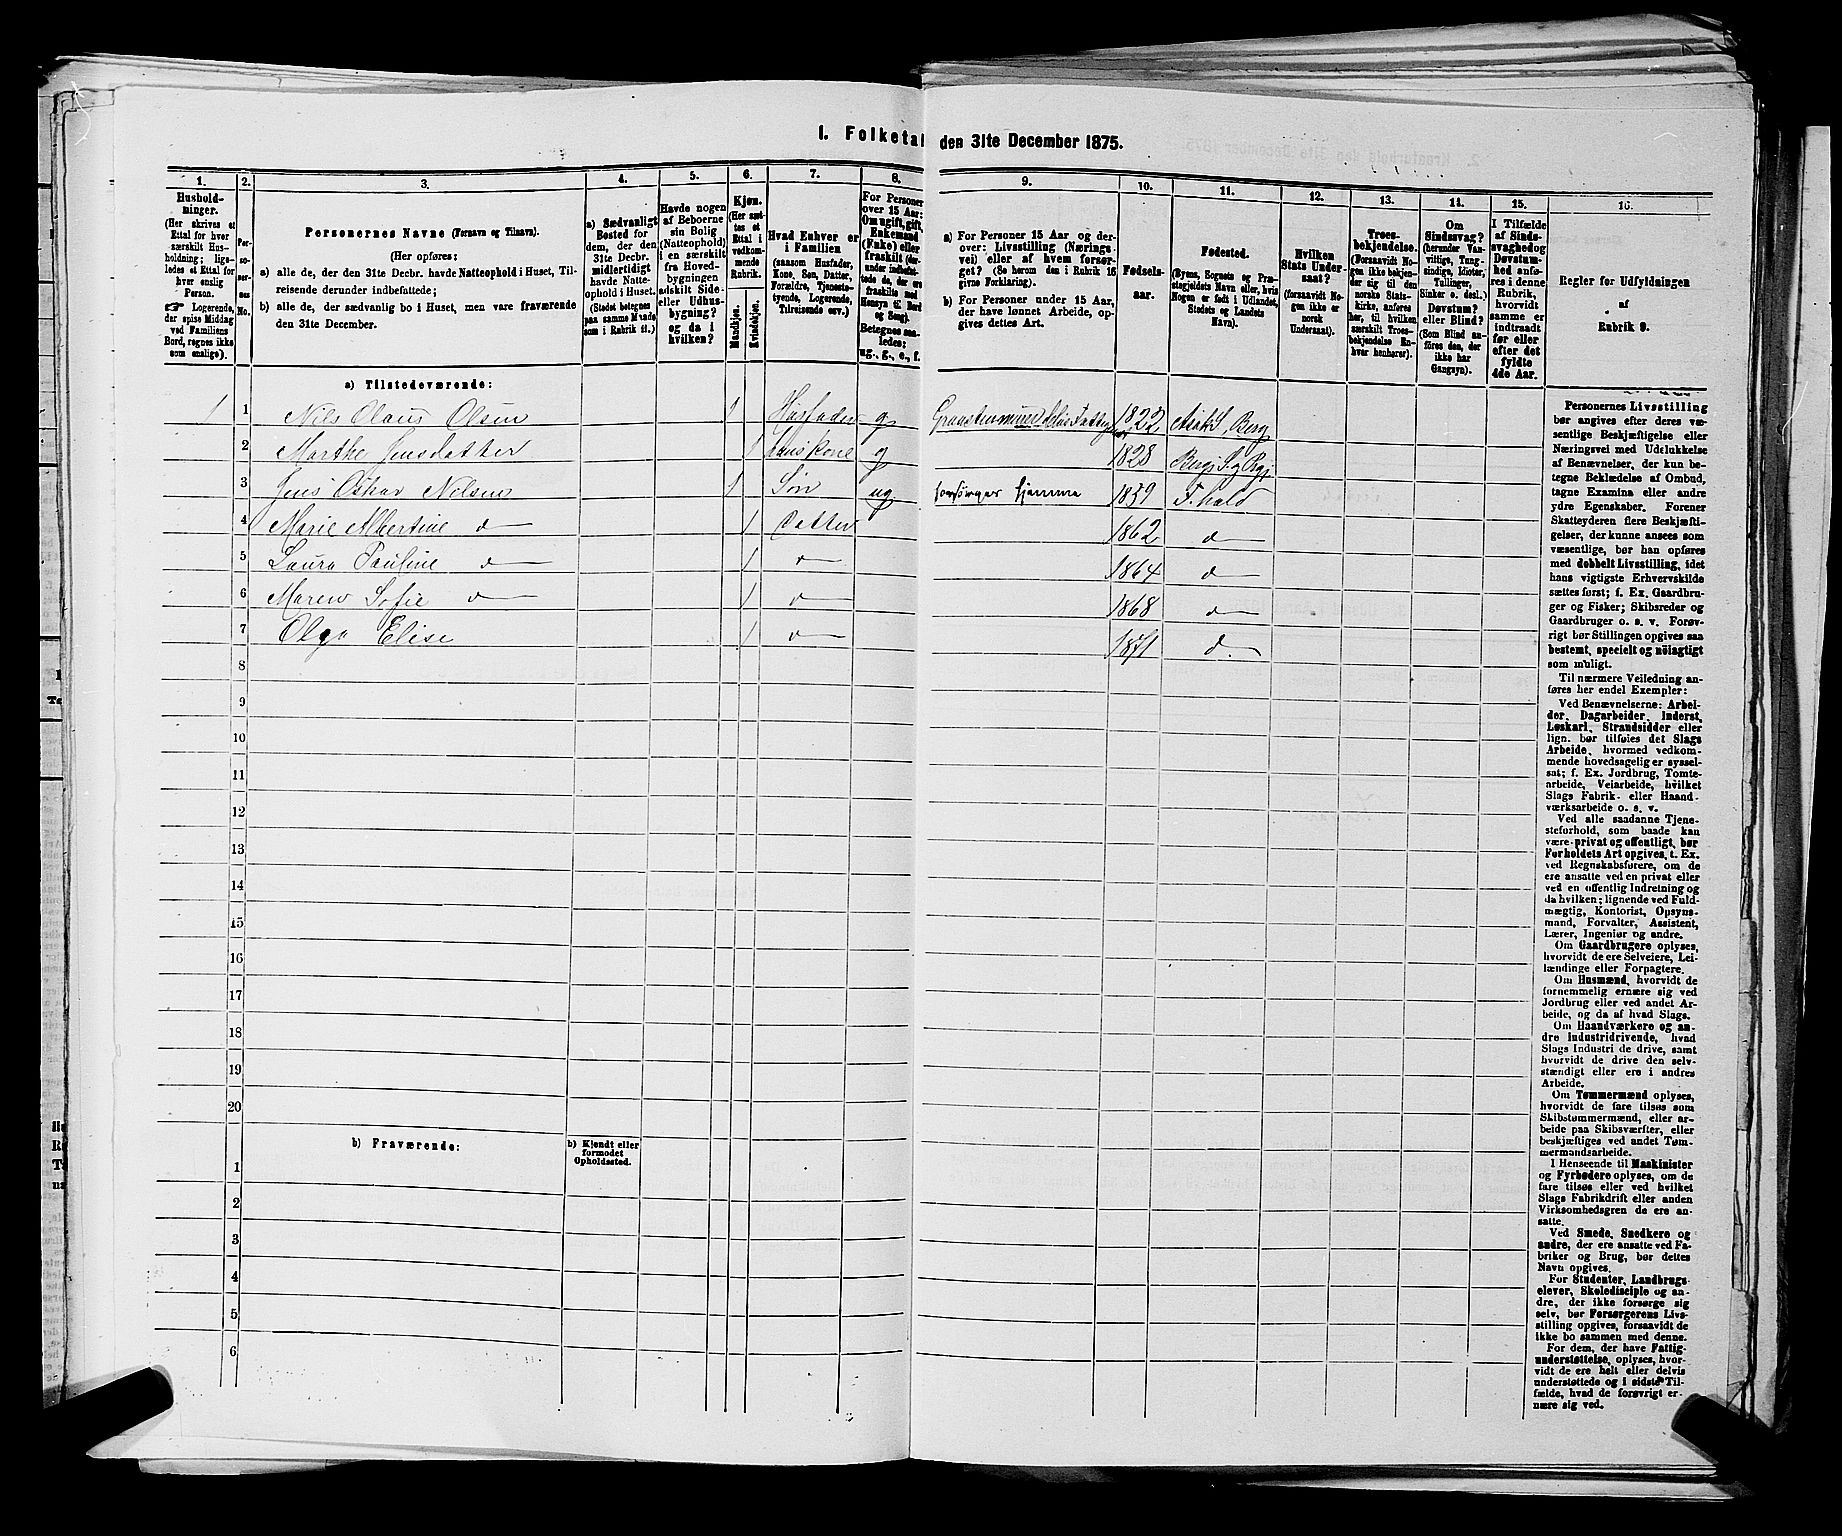 I. Folketal den 31te December 1875.
1. 2. 3. 4. 5. 6. 7. 8. 9. 10. 11. 12. 13. 14. 15. 16.
Hushold-
ninger.
(Her skrives et
Ettal for hver
særskilt Hus-
holdning; lige-
ledes et Ettal for
hver enslig
Person.
☞ Logerende,
der spise Middag
ved Familiens
Bord, regnes ikke
som enslige).
Per-
so-
ner-
nes
No.
Personernes Navne (Fornavn og Tilnavn).
(Her opføres;
a) alle de, der den 31te Decbr. havde Natteophold i Huset, Til-
reisende derunder indbefattede;
b) alle de, der sædvanlig bo i Huset, men vare fraværende
den 31te December.
a) Sædvanligt
Bosted for
dem, der den
31te Decbr.
midlertidigt
havde Natte-
ophold i Huset.
(Stedet betegnes
paa samme Maade
som i Rubrik 11.)
Havde nogen
af Beboerne
sin Bolig
(Natteophold)
i en særskilt
fra Hoved-
bygningen
adskilt Side-
eller Udhus-
bygning?
og da i
hvilken?
Kjøn.
(Her sæt-
tes et
Ettal i
vedkom-
mende
Rubrik.
Mandkjøn.
Kvindekjøn.
Hvad Enhver er
i Familien
(saasom Husfader,
Kone, Søn, Datter,
Forældre, Tjeneste-
tyende, Logerende,
Tilreisende osv.)
For Personer
over 15 Aar:
Om ugift, gift,
Enkemand
(Enke) eller
fraskilt (der-
under indbefat-
tede de, der ere
fraskilte med
Hensyn til Bord
og Seng).
Betegnes saa-
ledes:
ug., g., e., f.
a) For Personer 15 Aar og der-
over: Livsstilling (Nærings-
vei) eller af hvem forsør-
get? (Se herom den i Rubrik 16
givne Forklaring).
b) For Personer under 15 Aar,
der have lønnet Arbeide, op-
gives dettes Art.
Fødsels-
aar.
Fødested.
(Byens, Sognets og Præ-
stegjeldets Navn eller, hvis
Nogen er født i Udlandet,
Stedets og Landets
Navn).
Hvilken
Stats Under-
saat?
(forsaavidt No-
gen ikke er
norsk
Undersaat).
Troes-
bekjendelse.
(Forsaavidt No-
gen ikke bekjen-
der sig til den
norske Stats-
kirke, anføres
her, til hvilken
særskilt Troes-
bekjendelse En-
hver henhører).
Om
Sindssvag?
(herunder Van-
vittige, Tung-
sindige, Idioter,
Tullinger,
Sinker o. desl.)
Døvstum?
eller Blind?
(Som Blind an-
føres den, der
ikke har
Gangsyn).
I Tilfælde
af Sinds-
svaghed og
Døvstum-
hed anfø-
res i denne
Rubrik,
hvorvidt
samme er
indtraadt
før eller
efter det
fyldte
4de Aar.
Regler for Udfyldningen
af
Rubrik 9.
a) Tilstedeværende:
1 1 Nils Olaus Olsen 1 Husfader g 1822 Asak S, Berg
2 Marthe Jensdatter 1 hans Kone g 1828
3 Jens Oskar Nilsen 1 Søn ug forsørges hjemme 1859 F.hald
4 Marie Albertine d 1 Datter 1862 d
5 Laura Pauline d 1 d 1864 d
6 Maren Sofie d 1 d 1868 d
7 Olga Elise 1 d 1871 d
8
9
10
11
12
13
14
15
16
17
18
19
20
b) Fraværende:
b) Kjendt eller
formodet
Opholdssted.
1
2
3
4
5
6
Personernes Livsstilling
bør angives efter deres væ-
sentlige Beskjæftigelse eller
Næringsvei med Udelukkelse
af Benævnelser, der kun be-
tegne Beklædelse af Ombud,
tagne Examina eller andre
ydre Egenskaber. Forener
Skatteyderen flere Beskjæfti-
gelser, der kunne ansees som
væsentlige, bør han opføres
med dobbelt Livsstilling, idet
hans vigtigste Erhvervskilde
sættes først; f. Ex. Gaardbru-
ger og Fisker; Skibsreder og
Gaardbruger o. s. v. Forøv-
rigt bør Stillingen opgives saa
bestemt, specielt og nøiagtigt
som muligt.
Til nærmere Veiledning an-
føres her endel Exempler:
Ved Benævnelserne: Arbei-
der, Dagarbeider, Inderst,
Løskarl, Strandsidder eller
lign. bør tilføies det Slags
Arbeide, hvormed vedkom-
mende hovedsagelig er syssel-
sat; f. Ex. Jordbrug, Tomte-
arbeide, Veiarbeide, hvilket
Slags Fabrik- eller Haand-
værksarbeide o. s. v.
Ved alle saadanne Tjene-
steforhold, som baade kan
være privat og offentligt, bør
Forholdets Art opgives, t. Ex.
ved Regnskabsførere, om de
ere ansatte ved en privat eller
ved en offentlig Indretning og
da hvilken; lignende ved Fuld-
mægtig, Kontorist, Opsyns-
mand, Forvalter, Assistent,
Lærer, Ingeniør og andre.
Om Gaardbrugere oplyses,
hvorvidt de ere Selveiere, Lei-
lændinge eller Forpagtere.
Om Husmænd, hvorvidt de
fornemmelig ernære sig ved
Jordbrug eller ved andet Ar-
beide, og da af hvad Slags.
Om Haandværkere og an-
dre Industridrivende, hvad
Slags Industri de drive, samt
hvorvidt de drive den selv-
stændigt eller ere i andres
Arbeide.
Om Tømmermænd oplyses,
hvorvidt de fare tilsøs som
Skibstømmermænd, eller ar-
beide paa Skibsværfter, eller
beskjæftiges ved andet Tøm-
mermandsarbeide.
I Henseende til Maskinister
og Fyrbødere oplyses, om de
fare tilsøs eller ved hvilket
Slags Fabrikdrift eller anden
Virksomhedsgren de ere an-
satte.
Ved Smede, Snedkere og
andre, der ere ansatte ved Fa-
briker og Brug, bør dettes
Navn opgives.
For Studenter, Landbrugs-
elever, Skoledisciple og an-
dre, der ikke forsørge sig
selv, bør Forsørgerens Livs-
stilling opgives, forsaavidt de
ikke bo sammen med denne.
For dem, der have Fattig-
understøttelse, oplyses, hvor-
vidt de ere helt eller delvis
understøttede og i sidste Til-
fælde, hvad de forøvrigt er-
nære sig ved.